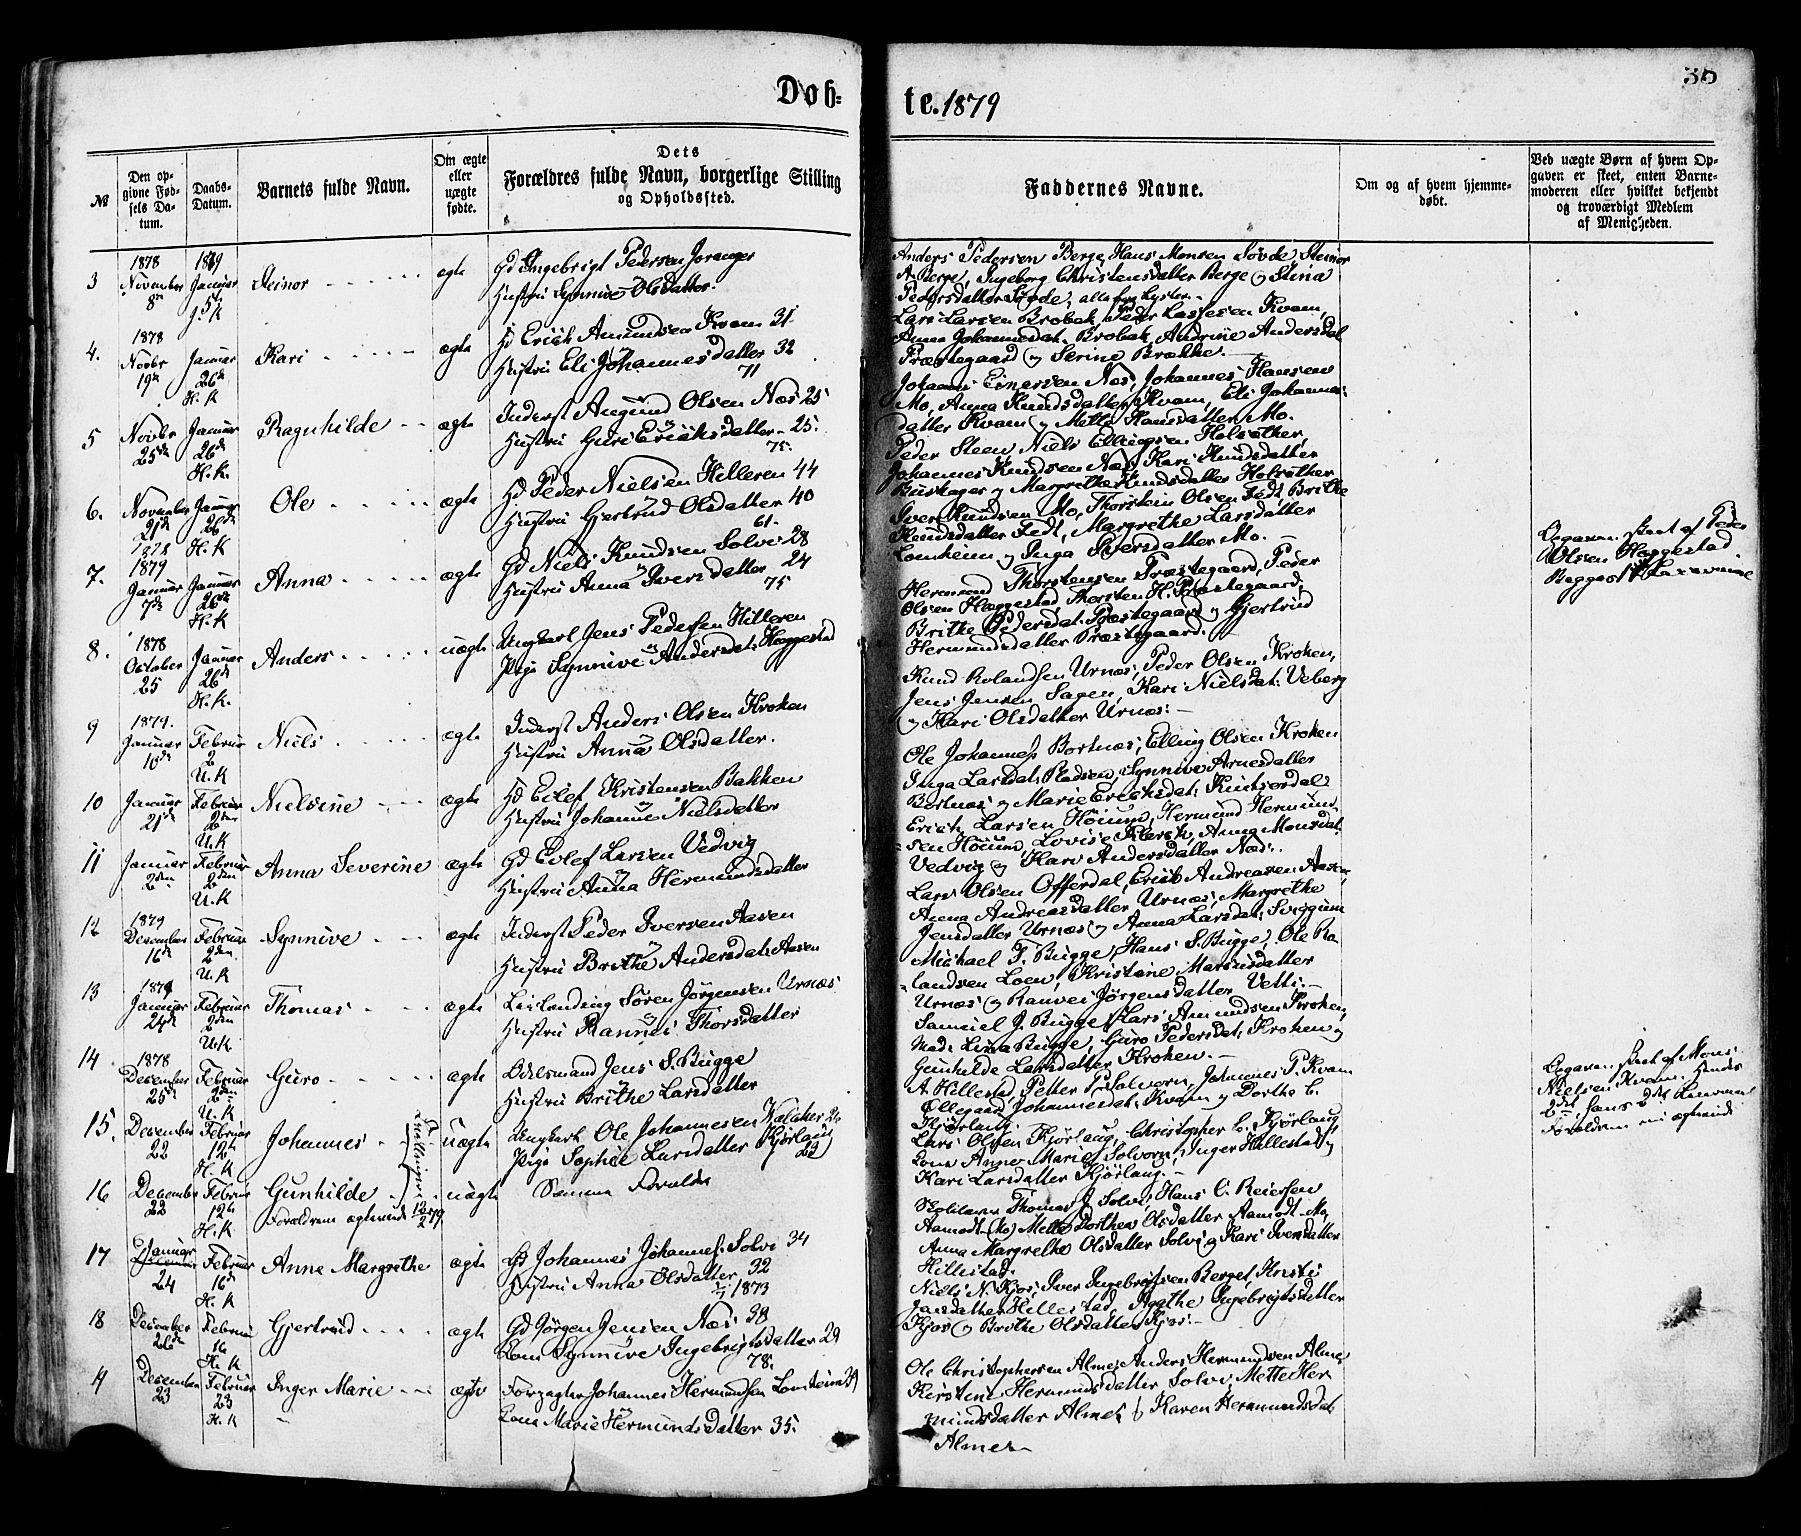 Døb-
te. 1879
36
№
Den opgivne Fødsels Datum.
Daabs-Datum.
Barnets fulde Navn.
Om ægte eller uægte fødte.
Dets
Forældres fulde Navn, borgerlige Stilling
og Opholdssted.
Faddernes Navne.
Om og af hvem hjemmedøbt.
Ved uægte Børn af hvem Opgaven er skeet, enten Barnemoderen eller hvilket bekjendt og troværdigt Medlem af Menigheden.
3 1878 November 8de 1879 Januar 5te J. K Steinor ægte
Gd Ingebrigt Pedersen Joranger
Hustru Synnive Olsdatter.
Anders Pedersen Berge, Hans Monsen Søvde Steinor
A Berge, Ingeborg Christensdatter Berge og Stina
Pedersdatter Søvde, alle fra Lyster.
4. 1878 Novbr 19de Januar 26de H. K Kari ægte
Gd Erick Amundsen Kvam 31
Hustru Eli Johannesdatter 32
71
Lars Larsen Brobak, Peder Lassesen Kvam,
Anna Johannesdat. Brobak, Andrine Andersdat
Præstegaard og Serine Brække.
5 Novbr 25de Januar 26de H. K. Ragnhilde ægte
Inderst Amund Olsen Næs 25
Hustru Guri Ericksdatter 25.
75.
Johannes Einersen Næs, Johannes Hansen
Mo, Anna Knudsdatter Kvam, Eli Johannes-
datter Kvam og Mette Hansdatter Mo.
6. November 21de 1878 Januar 26de H. K Ole ægte
Gd Peder Nielsen Hilleren 44
Hustru Gjertrud Olsdatter 40
61.
Peder Steen, Niels Ellingsen Holsether,
Johannes Knudsen Næs, Kari Knudsdatter
Buskager og Margrethe Knudsdatter Holsether
7. 1879 Januar 7de Januar 26de H. K Anna ægte
Gd Niels Knudsen Solvi 28
Hustru Anna Iversdatter 24
75
Iver Knudsen Mo, Thorstein Olsen Fedt, Brithe
Knudsdatter Fedt, Margrethe Larsdatter
Lomheim og Inga Iversdatter Mo.
8. 1878 October 25 Januar 26de H. K. Anders uægte
Ungkarl Jens Pedersen Hilleren
Pige Synnive Andersdat. Haggestad
Hermund Thorstensen Præstegaard, Peder
Olsen Haggestad, Thorsten H. Præstegaard,
Brithe Pedersdat. Præstegaard og Gjertrud
Hermundsdatter Præstegaard.
Opgaven skeet af Peder
Olsen Haggestad.
9 1879. Januar 10de Februar 2 U. K Niels ægte
Inderst Anders Olsen Kroken
Hustru Anna Olsdatter.
Knud Rolandsen Urnæs, Peder Olsen Kroken,
Jens Jensen Sagen, Kari Nielsdat. Veberg
og Kari Olsdatter Urnæs.
10 Januar 21de Februar 2den U. K Nielsine ægte
Gd Evlef Kristensen Bakken
Hustru Johanne Nielsdatter
Ole Johanness Bortnæs, Elling Olsen Kroken
Inga Larsdat. Radsen, Synnive Arnesdatter
Bortnæs og Marie Ericksdat. Kintserdal
11 Januar 2den Februar 2den U. K Anna Severine ægte
Gd Evlef Larsen Vedvig
Hustru Anna Hermundsdatter
Erick Larsen Høium, Hermund Hermund-
sen Høium, Lovise Klerck, Anna Monsdat.
Vedvig og Kari Andersdatter Næs.
12 1879 Desember 16de Februar 2den U. K Synnive ægte
Inderst Peder Iversen Aasen
Hustru Brithe Andersdat. Aasen
Lars Olsen Offerdal, Erick Andreasen Aasen,
Anna Andreasdatter Urnæs, Margrethe
Jensdatter Urnæs og Anna Larsdat. Svæggum
13 1879 Januar 24de Februar 2den U. K. Thomas ægte
Leilending Søren Jørgensen Urnæs
Hustru Rannei Thorsdatter
Michael F. Bugge, Hans S. Bugge, Ole Ro-
landsen Loen, Kristine Mar
Urnæs og Ranvei Jørgensdatter Vetti.
14 1878 Desember 25de Februar 2den U. K Guro ægte
Odelsmand Jens S. Bugge
Hustru Brithe Larsdatter
Samuel J. Bugge, Lars Amundsen Kroken,
Mad. Lina Bugge, Guro Pedersdat. Kroken og
Gunhilde Larsdatter Kroken.
15. Desember 22 Februar 12te H. K Johannes Tvillinger uægte
Ungkarl Ole Johannesen Kalaker 26
Pige Sophie Larsdatter Kjørlaug 23
A Hillestad, Petter P Solvorn, Johannes P. Kvam
Øllegaard Johannesdat. Kvam og Dorthe C.
Kjørlaug.
Opgaven skeet af Mons
Nielsen Kvam. Hendes
2det, hans 2det Leiermaal
Forældrene nu ægteviede
16 Desember 22 Februar 12te H. K Gunhilde uægte
Forældrene ægteviede 12/2 79
Samme Forældre
Lars Olsen Kjørlaug, Christopher C. Kjørlaug
Kona Anne Marie Solvorn, Inger Hillestad og
Kari Larsdatter Kjørlaug.
17 Januar 24 Februar 16de H. K Anne Margrethe ægte
Gd Johannes Johannes. Solvi 34
Hustru Anna Olsdatter 32
1873
Skolelærer Thomas J Solvi, Hans C. Reiersen
Aamodt Mo, Mette Dorthea Olsdatter Aamodt Mo
Anna Margrethe Olsdatter Solvi og Kari Iversdatter
Hillestad.
18 Desember 26de Februar 16 H. K Gjertrud ægte
Gd Jørgen Jensen Næs 38
Kona Synnive Ingebrigtsdatter 29
78.
Niels N. Kjos, Iver Ingebrigtsen Berget, Kristi
Jansdatter Hillestad, Agathe Ingebrigtsdatter
Kjos og Brithe Olsdatter Kjos.
Desember 23 Februar 23 H. K Inger Marie ægte
Forpagter Johannes Hermundsen Lomheim 39
Kona Marie Hermundsdatter 35.
Ole Christophersen Alme, Anders Hermundsen Alme,
Kirstine Hermundsdatter Solvi, Mette Her
mundsdatter Alme og Karen Hermundsdat.
Alme.